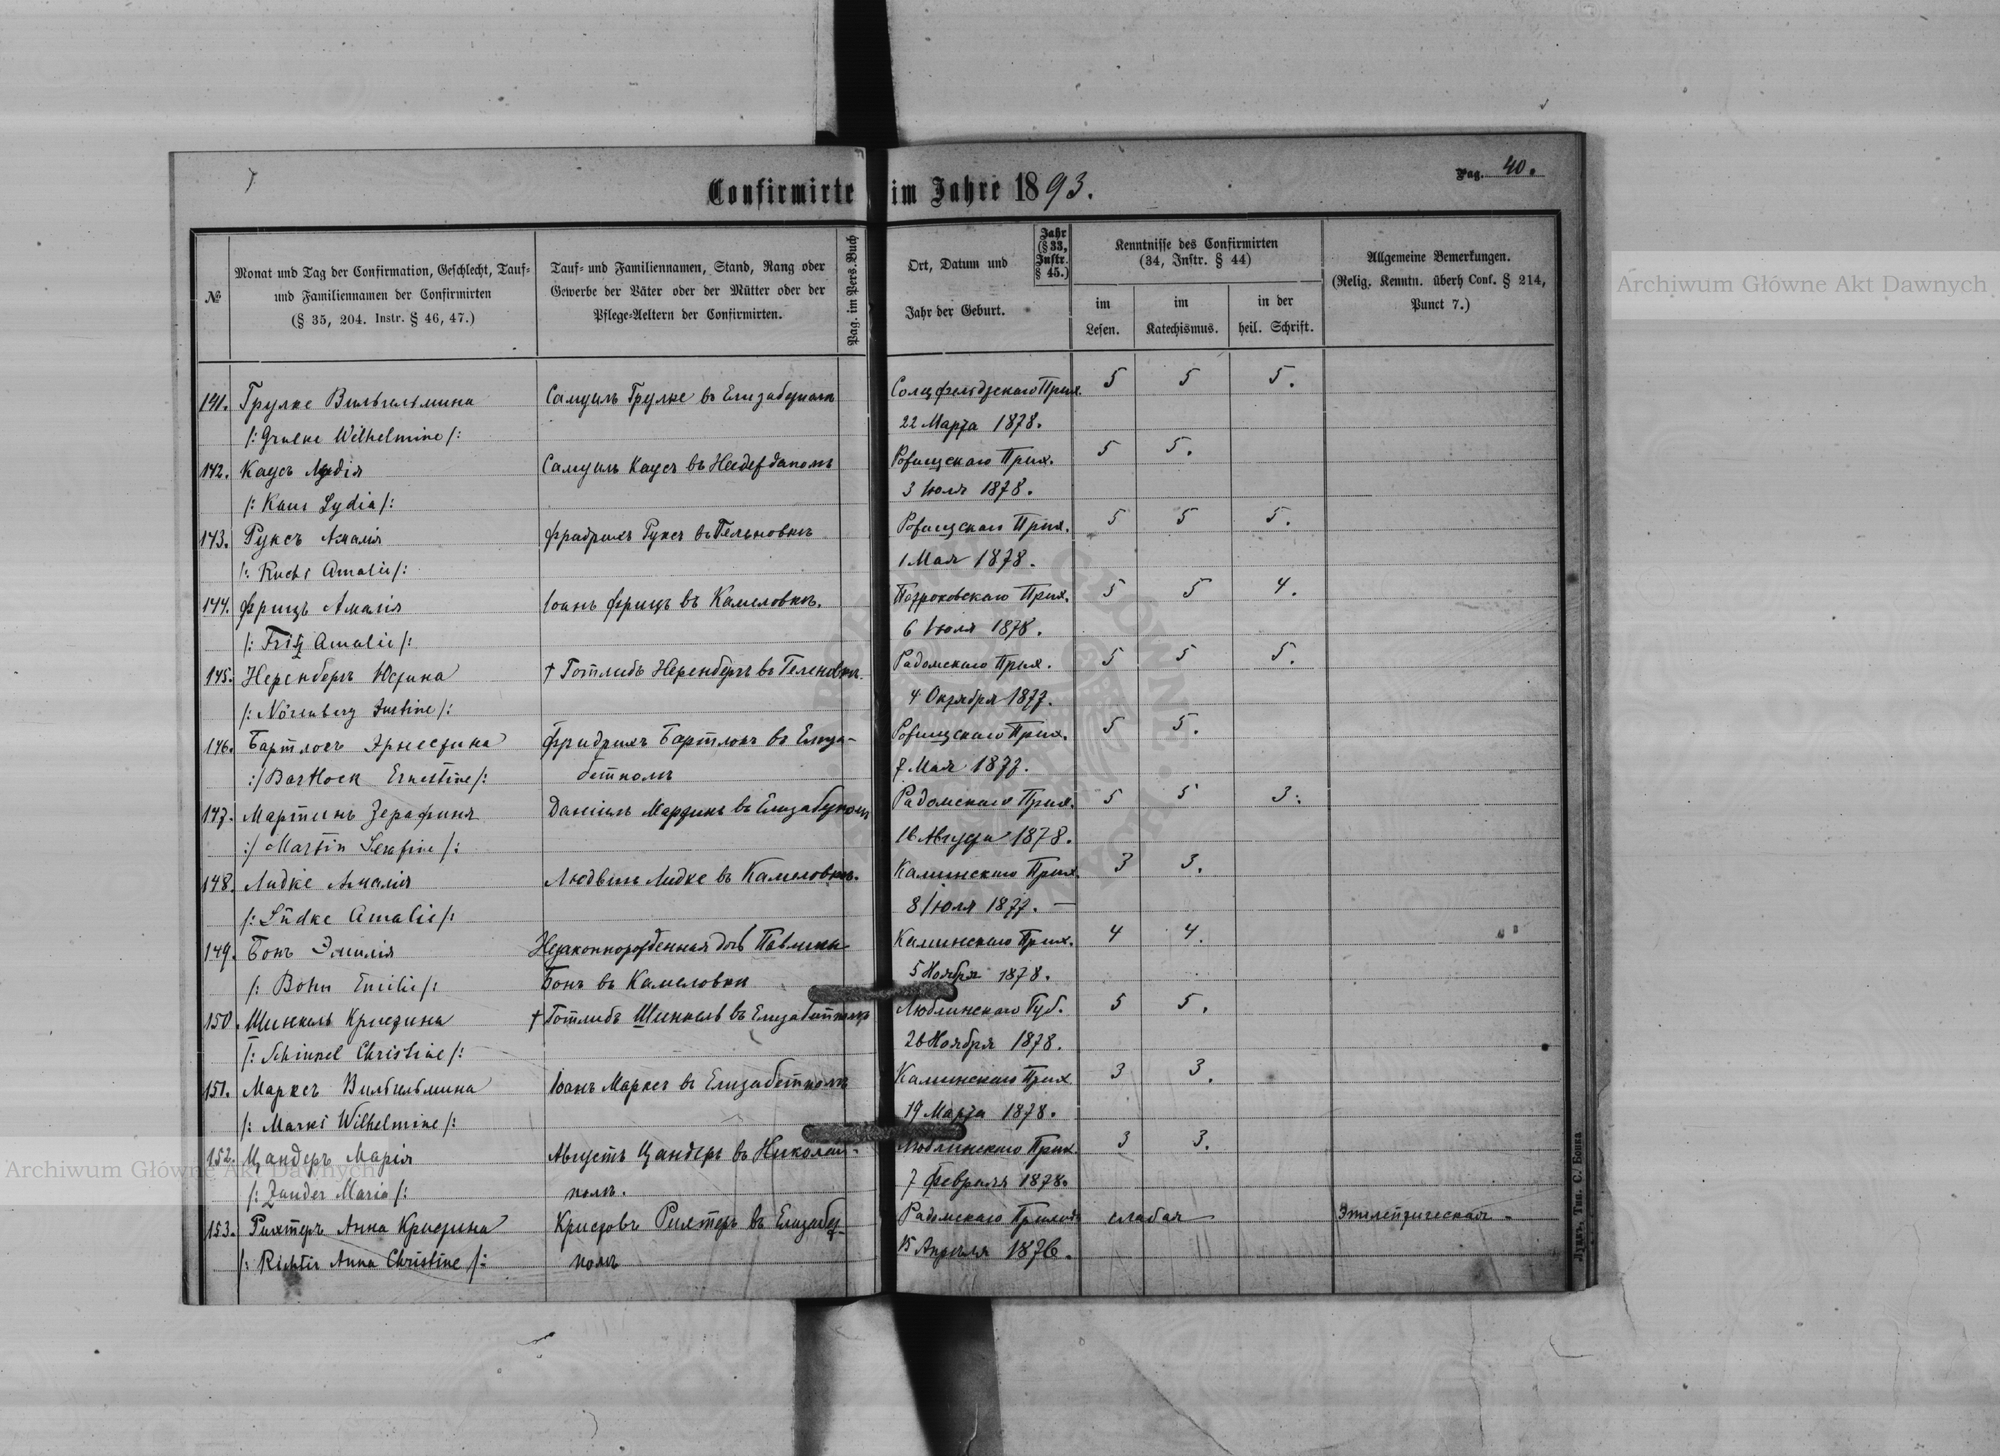 Pag. 40.
Confirmirte im Jahre 1893.
№
Monat und Tag der Confirmation, Geschlecht, Tauf-
und Familiennamen der Confirmirten
(§ 35, 204. Instr. § 46, 47.)
Tauf- und Familiennamen, Stand, Rang oder
Gewerbe der Väter oder der Mütter oder der
Pflege-Aeltern der Confirmirten.
Pag. im Pers. Buch
Ort, Datum und
Jahr der Geburt.
Jahr
(§ 33,
Instr.
§ 45.)
Kenntnisse des Confirmirten
(34, Instr. § 44)
im
Lesen.
im
Katechismus.
in der
heil. Schrift.
Allgemeine Bemerkungen.
(Relig. Kenntn. überh Conf. § 214,
Punct 7.)
141. Грулке Вильгельмина Самуилъ Грулке въ Прих. 5 5 5.
/: Grulke Wilhelmine /: 22 Марта 1878.
142. Каусъ Лидія Самуилъ Каусъ въ Рожищскаго Прих. 5 5.
/: Kaus Lydia /: 3 Іюля 1878.
143. Руксъ Амалія Фридрихъ Руксъ въ Рожищскаго Прих. 5 5 5.
/: Rucks Amalie /: 1 Мая 1878.
144. Фрицъ Амалія Іоанъ Фрицъ въ Камеловкѣ. Петроковскаго Прих. 5 5 4.
/: Fritz Amalie /: 6 Іюля 1878.
145. Неренбергъ Юстина † Готлибъ Неренбергъ въ Геленовкѣ. Радомскаго Прих. 5 5 5.
/: Nörenberg Justine /: 4 Октября 1877.
146. Бартлокъ Эрнестина Фридрихъ Бартлокъ въ Елиза- Рожищскаго Прих. 5 5.
:/ Bartlock Ernestine /: бетполѣ Мая 1877.
147. Мартинъ Зерафина Даніилъ Мартинъ въ Елизабетполѣ Радомскаго Прих. 5 5 3.
:/ Martin Serafine /: 16 Августа 1878.
148. Лидке Амалія Людвигъ Лидке въ Камеловкѣ. Калишскаго Прих. 3 3.
/: Lüdke Amalie /: 8 Іюля 1877. —
149. Бонъ Эмилія Незаконнорожденная дочь Павлины Калишскаго Прих. 4 4.
/: Bohn Emilie /: Бонъ въ Камеловки 5 Ноября 1878.
150. Шинкель Кристина † Готлибъ Шинкель въ Елизабетполѣ Люблинскаго Губ. 5 5.
/: Schinkel Christine /: 26 Ноября 1878.
151. Марксъ Вильгельмина Іоанъ Марксъ въ Елизабетполѣ Калишскаго Прих 3 3.
/: Marks Wilhelmine /: 19 Марта 1878.
152. Цандеръ Марія Августъ Цандеръ въ Николай- Люблинскаго Прих. 3 3.
/: Zander Maria /: полѣ. 7 Февраля 1878.
153. Рихтеръ Анна Кристина Кристовъ Рихтеръ въ Елизабет- Радомскаго Прихода слабая Эпилептическая.
/: Richter Anna Christine /: полѣ 15 Апрѣля 1876.
Луцкъ, Тип. С. Бонка
Archiwum Główne Akt Dawnych
Archiwum Główne Akt Dawnych